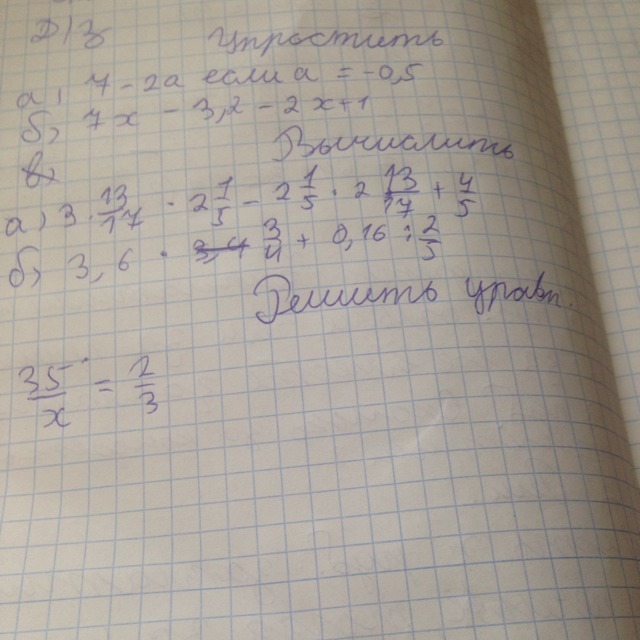 Д/з Упростить
а, 7 - 2а если а = -0,5
б, 7x - 3,2 - 2x + 1
Вычислить
а, 3 · 13/17 · 2 1/5 - 2 1/5 · 2 13/17 + 4/5
б, 3,6 · 3/4 + 0,16 : 2/5
Решить уравн.
35/x = 2/3